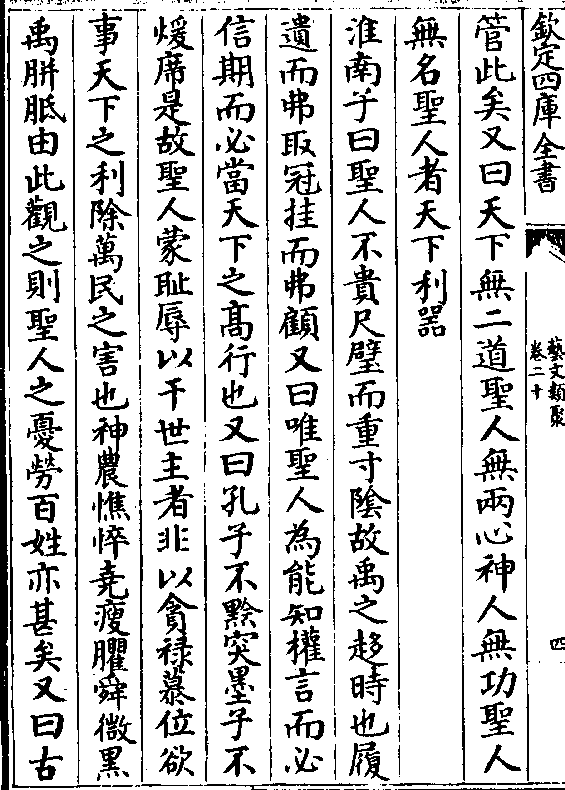 欽定四庫全書
藝文類聚
卷二十
四
管此矣又曰天下無二道聖人無兩心神人無功聖人
無名聖人者天下利器
淮南子曰聖人不貴尺璧而重寸陰故禹之趍時也履
遺而弗取冠挂而弗顧又曰唯聖人為能知權言而必
信期而必當天下之髙行也又曰孔子不黔突墨子不
煖席是故聖人蒙耻辱以干世主者非以貪祿慕位欲
事天下之利除萬民之害也神農憔悴堯瘦臞舜黴黑
禹胼胝由此觀之則聖人之憂勞百姓亦甚矣又曰古